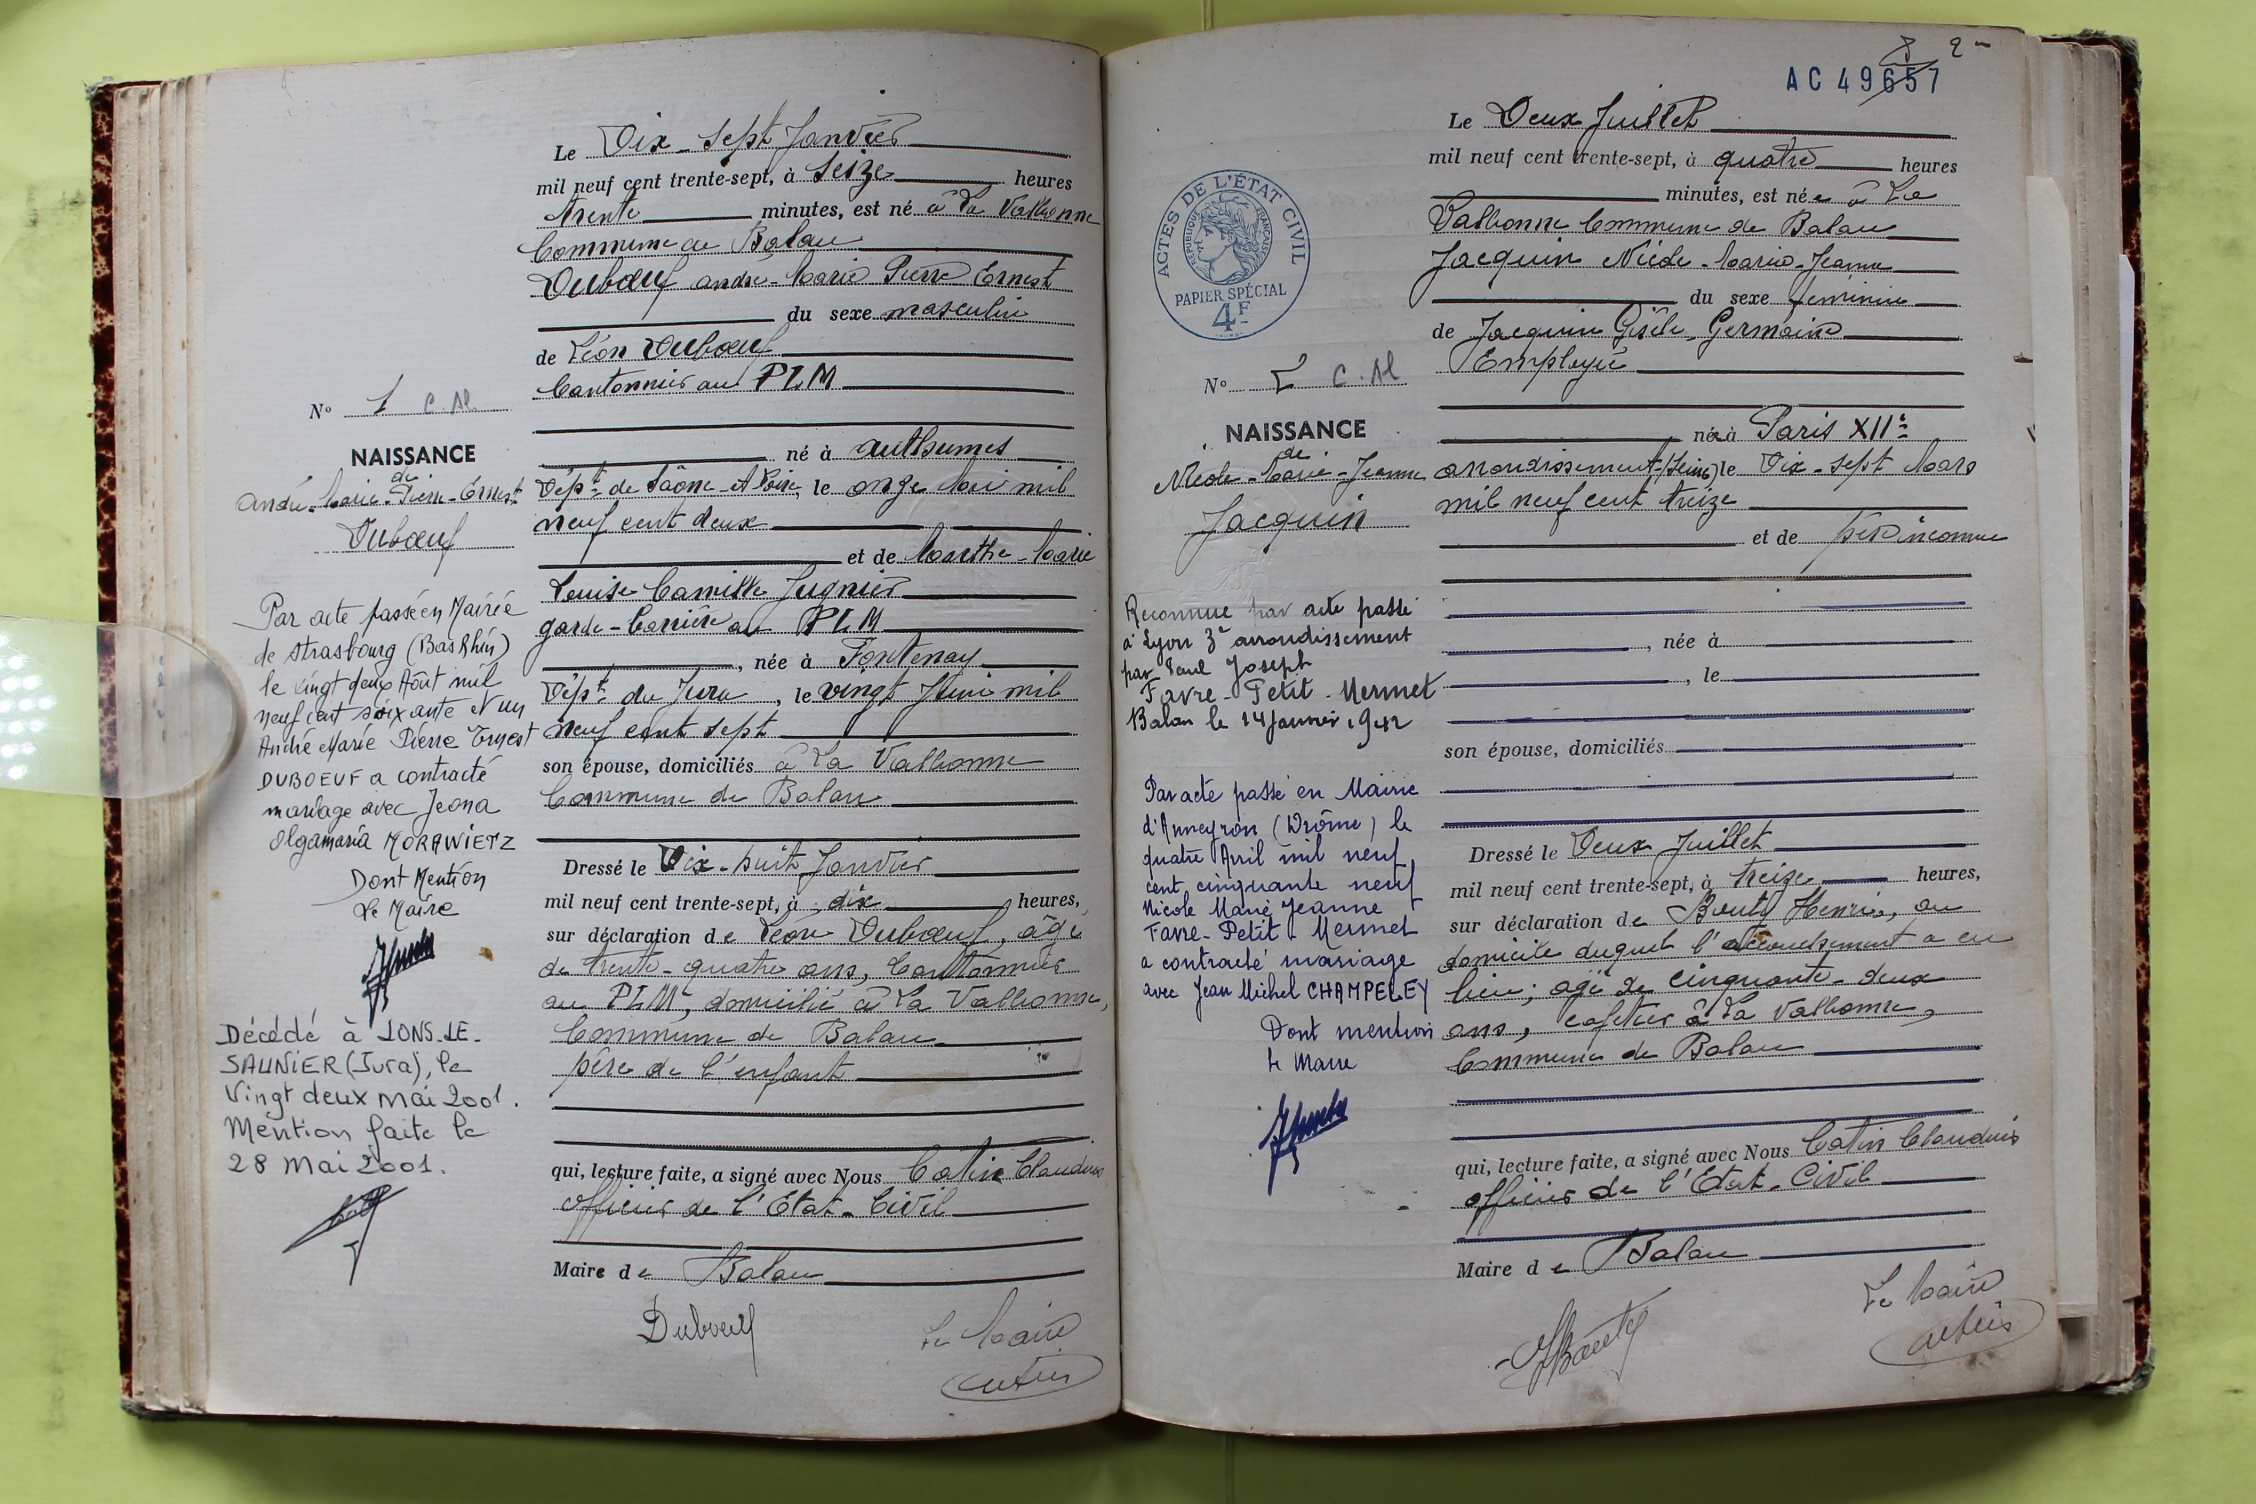 Le Dix-sept Janvier
mil neuf cent trente-sept, à seize heures
trente minutes, est né à La Valbonne
Commune de Balan
Duboeuf André-Marie Pierre Ernest
du sexe masculin
de Léon Duboeuf
Cantonnier au PLM
né à Authumes
Dépt de Saône-et-Loire, le onze Mai mil
neuf cent deux
et de Marthe-Marie
Louise Camille Jugnier
garde-barrière au PLM
, née à Fontenay
Dépt du Jura, le vingt Juin mil
neuf cent sept
son épouse, domiciliés à La Valbonne
Commune de Balan
Dressé le Dix-huit Janvier
mil neuf cent trente-sept, à dix heures,
sur déclaration de Léon Duboeuf, âgé
de trente-quatre ans, Cantonnier
au PLM, domicilié à La Valbonne,
Commune de Balan
père de l'enfant
qui, lecture faite, a signé avec Nous Catin Claudius
officier de l'Etat-Civil
Maire de Balan
Duboeuf
Le Maire
Catin
N° 1 C.M.
NAISSANCE
de
André-Marie-Pierre-Ernest
Duboeuf
Par acte passé en Mairie
de Strasbourg (Bas Rhin)
le vingt deux Août mil
neuf cent soixante et un
André Marie Pierre Ernest
DUBOEUF a contracté
mariage avec Jeona
Olgamaria MORAWIETZ
Dont Mention
Le Maire
Décédé à LONS-LE-
SAUNIER (Jura), le
Vingt deux mai 2001.
Mention faite le
28 mai 2001.
2
AC 49657
Le Deux Juillet
mil neuf cent trente-sept, à quatre heures
minutes, est née à La
Valbonne Commune de Balan
Jacquin Nicole-Marie-Jeanne
du sexe féminin
de Jacquin Gisèle Germaine
Employée
née à Paris XIIe
arrondissement (Seine) le Dix-sept Mars
mil neuf cent treize
et de père inconnu
, née à
, le
son épouse, domiciliés
Dressé le Deux Juillet
mil neuf cent trente-sept, à treize heures,
sur déclaration de Bouty Henri, au
domicile duquel l'accouchement a eu
lieu; âgé de cinquante-deux
ans, cafetier à La Valbonne,
Commune de Balan
qui, lecture faite, a signé avec Nous Catin Claudius
officier de l'Etat-Civil
Maire de Balan
HBouty
Le Maire
Catin
ACTES DE L'ÉTAT CIVIL
RÉPUBLIQUE FRANÇAISE
PAPIER SPÉCIAL
4F
N° 2 C.M
NAISSANCE
de
Nicole-Marie-Jeanne
Jacquin
Reconnue par acte passé
à Lyon 3e arrondissement
par Paul Joseph
Favre-Petit-Mermet
Balan le 14 Janvier 1942
Par acte passé en Mairie
d'Anneyron (Drôme) le
quatre Avril mil neuf
cent cinquante neuf
Nicole Marie Jeanne
Favre-Petit-Mermet
a contracté mariage
avec Jean Michel CHAMPELEY
Dont mention
Le Maire